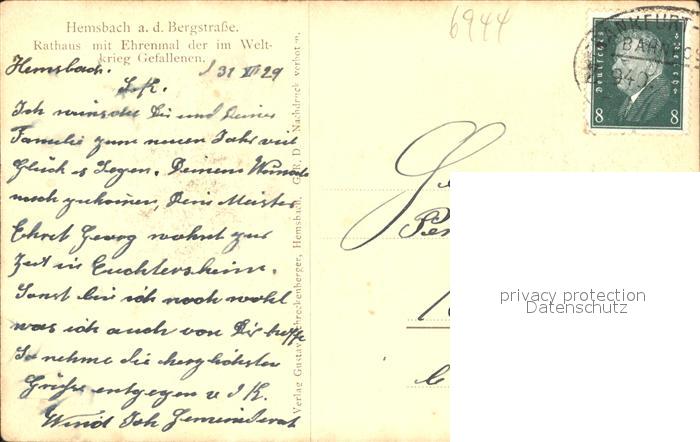 Hemsbach a. d. Bergstraße.
Rathaus mit Ehrenmal der im Welt-
krieg Gefallenen.
6944
Hemsbach. 31 XII 29
Ich wünsche Dir und Deiner
Familie zum neuen Jahr viel
Glück & Segen. Deinem Wunsche
nach zukommen, Dein Meister
Ehret Georg wohnt zur
Zeit in Euchtersheim.
Sonst bin ich noch wohl
was ich auch von Dir hoffe
So nehme die herzlichsten
Grüße entgegen v. I. K.
Wind Joh Gemeinderat
Verlag Gustav Schreckenberger, Hemsbach. G. R. D. Nachdruck verboten.
FRANKFURT
BAHNPOS
940
Deutsches Reich
8 8
privacy protection
Datenschutz